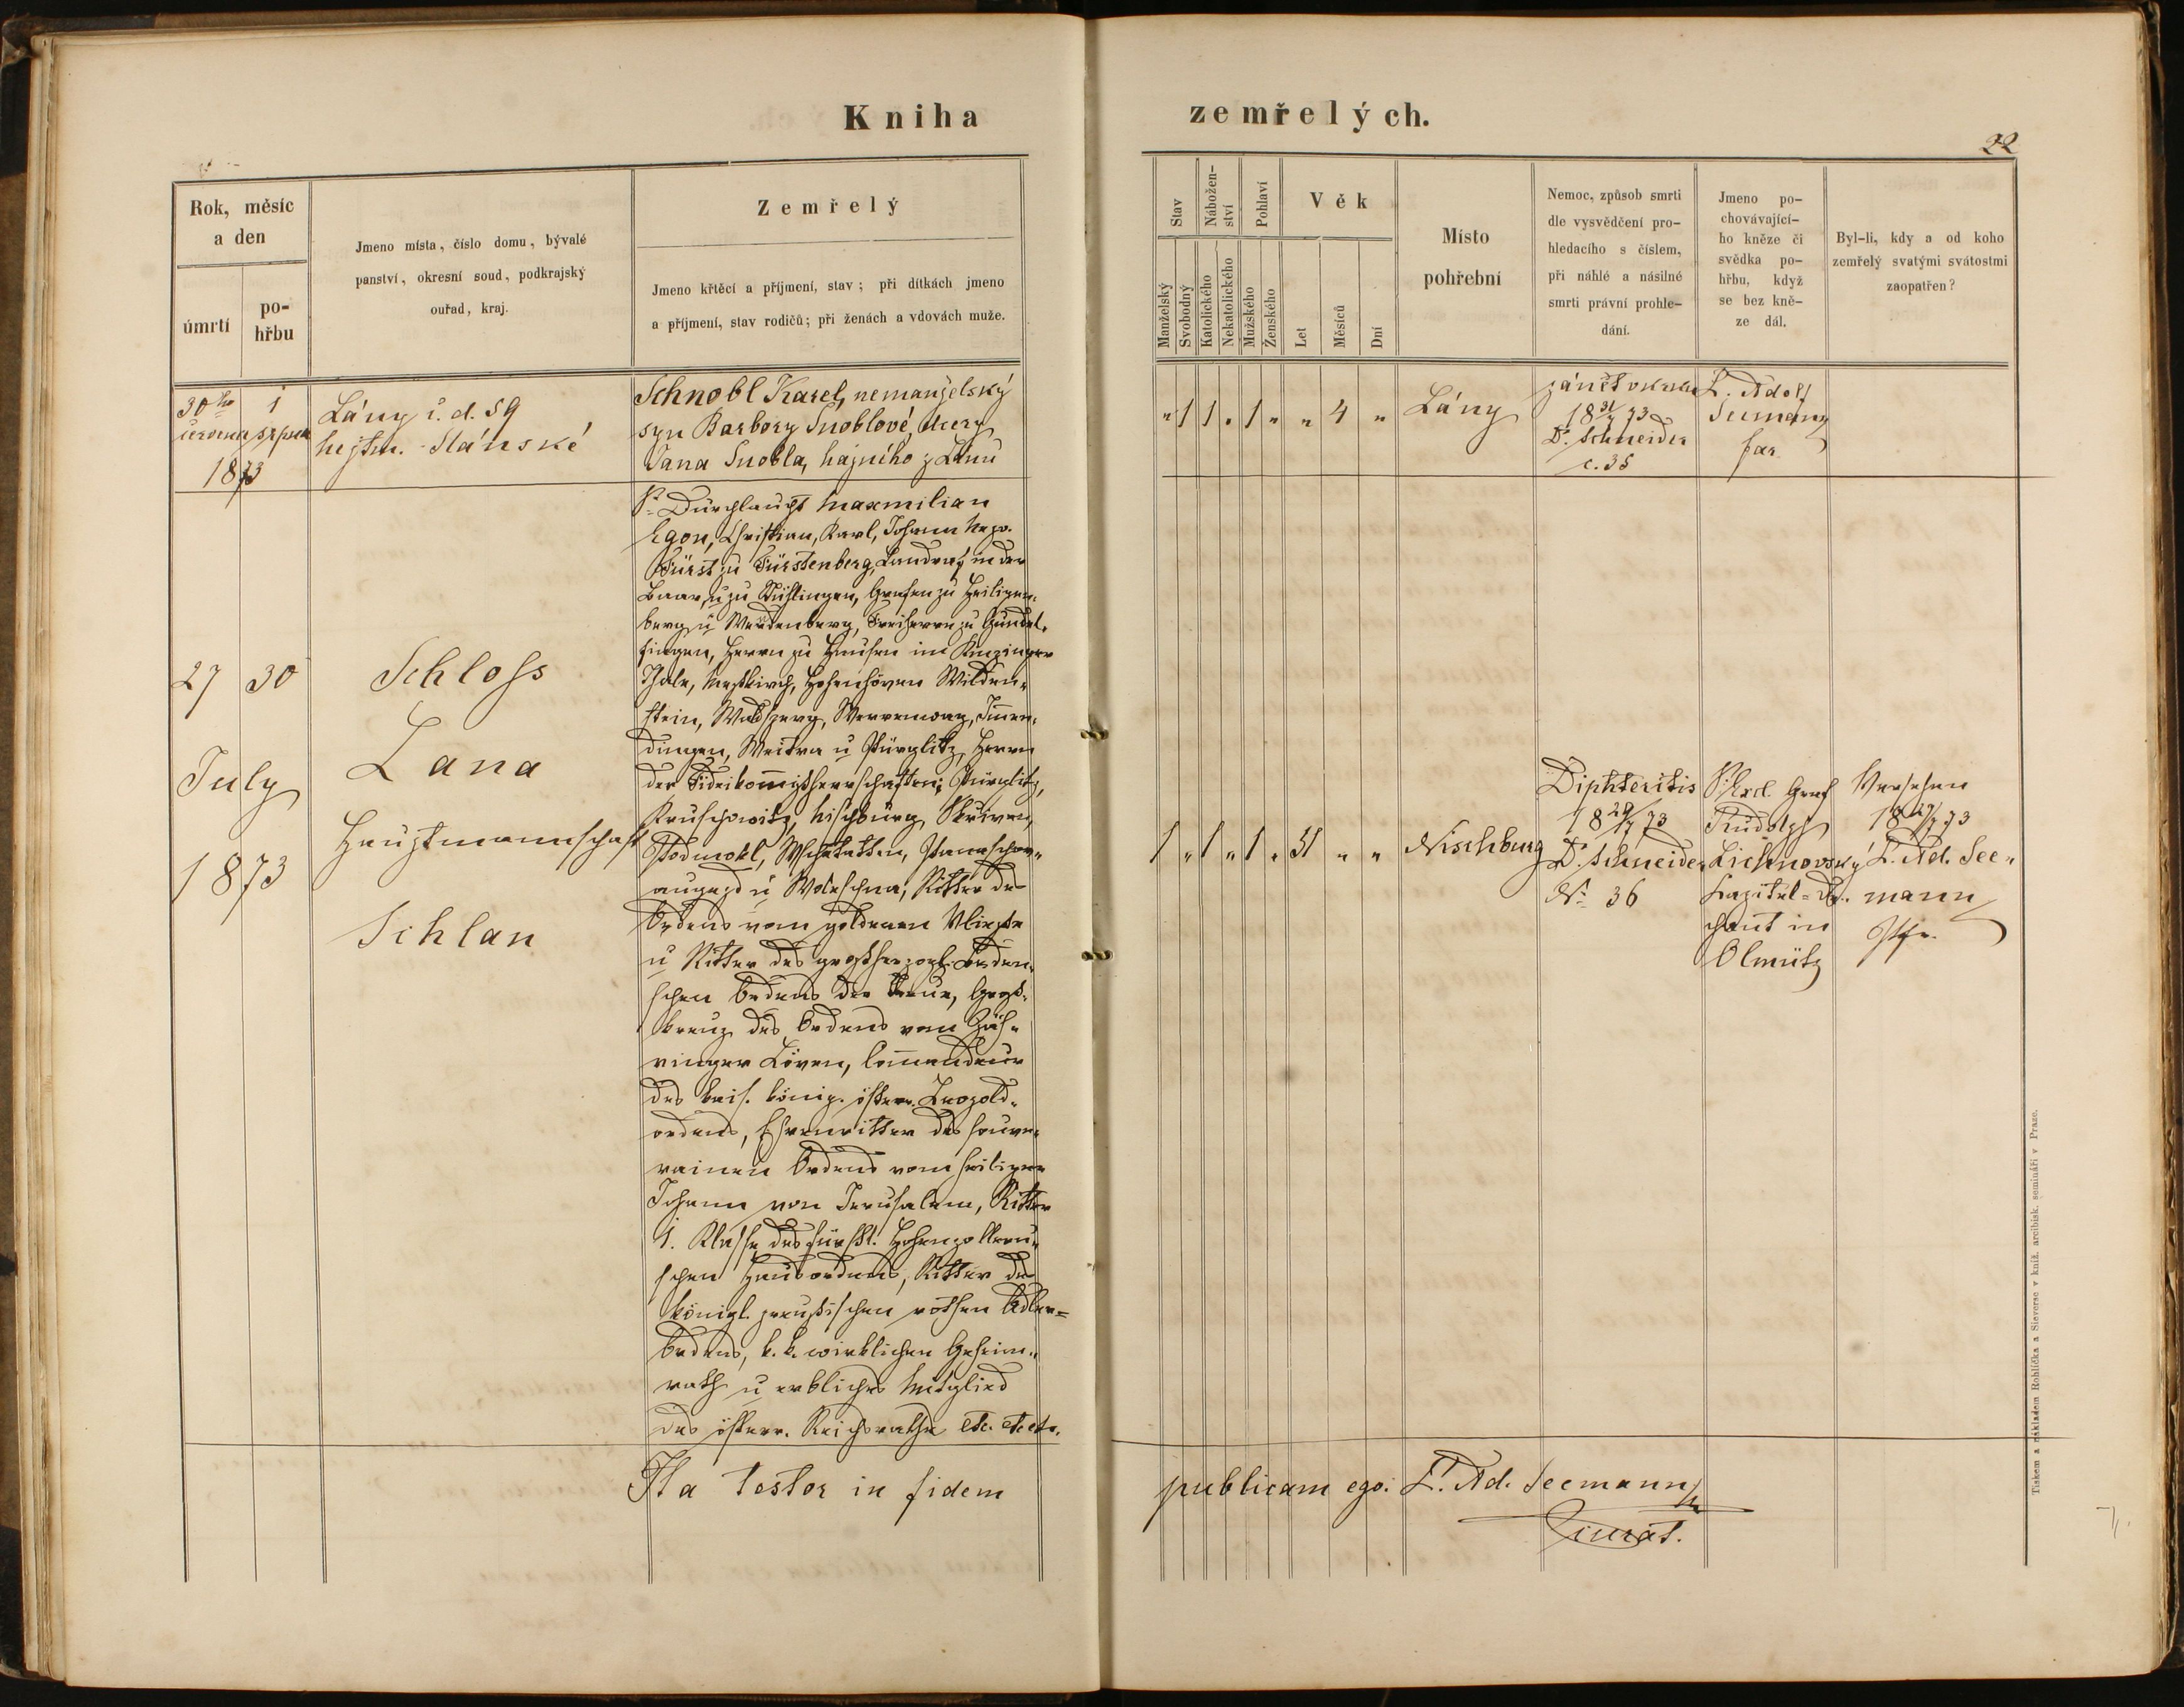 Kniha zemřelých.
22
Rok, měsíc
a den
úmrtí
po-
hřbu
Jmeno místa, číslo domu, bývalé
panství, okresní soud, podkrajský
ouřad, kraj.
Zemřelý
Jmeno křtěcí a příjmení, stav; při dítkách jmeno
a příjmení, stav rodičů; při ženách a vdovách muže.
Stav
Manželský
Svobodný
Nábožen-
ství
Katolického
Nekatolického
Pohlaví
Mužského
Ženského
Věk
Let
Měsíců
Dní
Místo
pohřební
Nemoc, způsob smrti
dle vysvědčení pro-
hledacího s číslem,
při náhlé a násilné
smrti právní prohle-
dání.
Jmeno po-
chovávající-
ho kněze či
svědka po-
hřbu, když
se bez kně-
ze dál.
Byl-li, kdy a od koho
zemřelý svatými svátostmi
zaopatřen?
30ho 1
července srpna
1873
Lány č. d. 59
hejtm. Slánské
Schnobl Karel, nemanželský
syn Barbory Snoblové, dcery
Jana Snobla, hajného z Lánů
" 1 1 " 1 " " 4 "
Lány
zánět
18 31/7 73
Dr. Schneider
č. 35
L. Adolf
Seemann
far.
27 30
July
1873
Schloss
Lana
Hauptmannschaft
Schlan
Sr. Durchlaucht Maxmilian
Egon, Christian, Karl, Johann Nepo.
Fürst zu Fürstenberg, Landgraf in der
Baar, u zu Stühlingen, Grafen zu Heiligen-
berg u Werdenberg, Freiherrn zu Gundel-
fingen, Herrn zu Hausen im Kinzinger
Thale, Mößkirch, Hohenhöven Wilden-
stein, Waldsperg, Werenwag, Im̄en-
dingen, Weitra u Pürglitz, Herrn
der Fideikom̄ißherrschaften: Pürglitz,
Kruschowitz, Nischburg, Skřiwan,
Podmokl, Wschetatten,
augezd u Woleschna, Ritter des
Ordens vom goldenen Vließe
u Ritter des großherzogl. Baden-
schen Ordens der Treue, Groß-
kreuz des Ordens vom Zäh-
ringer Löwen, Com̄andeur
des kais. könig. österr. Leopold-
ordens, Ehrenritter des souve-
rainen Ordens vom heiligen
Johann von Jerusalem, Ritter
1. Klasse des fürstl. Hohenzollern-
schen Hausordens, Ritter des
königl. preußischen rothen Adler-
Ordens, k. k. wirklichen Geheim-
rath u erbliches Mitglied
des österr. Reichsrathes etc. etc etc.
1 " 1 " 1 " 51 " "
Nischburg
Diphteritis
18 28/7 73
Dr. Schneider
No 36
S. Excl. Graf
Rudolph
Lichnovský
Kapitel-De-
chant in
Olmütz
Versehen
18 27/7 73
L. Ad. See-
mann
Pfr.
Ita testor in fidem publicam ego: L. Ad. Seemann
Curat.
Tiskem a nákladem Rohlíčka a Sieverse v kníž. arcibisk. semináři v Praze.